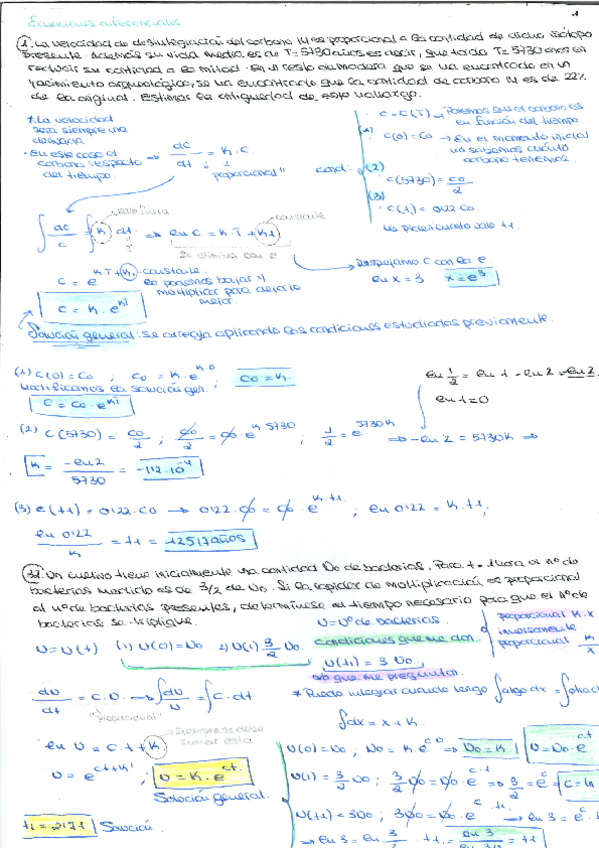 Ecuaciones diferenciales
1
1. La velocidad de desintegración del carbono 14 es proporcional a la cantidad de dicho isótopo
presente. Además su vida media es de T=5730 años es decir, que tarda T=5730 años en
reducir su cantidad a la mitad. En el resto de madera que se ha encontrado en un
yacimiento arqueológico, se ha encontrado que la cantidad de carbono 14 es de 22%
de la original. Estimar la antigüedad de este hallazgo.
*. La velocidad
será siempre una
derivada
· En este caso el
carbono respecto
del tiempo.
⇒ dc/dt = K·C
"proporcional"
cond.
· C = C(T) → Ponemos que el carbono es
en función del tiempo
(1)
· C(0) = C0 → En el momento inicial
no sabemos cuánto
carbono tenemos.
(2)
C(5730) = C0/2
(3)
· C(t1) = 0'22·C0
Les piden cuánto vale t1.
∫ dc/c = ∫ K dt ⇒ ln C = K·T + K1
constante
Se elimina con e
Despejamos C con la e
ln x = 3 x = e³
C = e^(KT+K1) constante.
lo podemos bajar y
multiplicar para dejarlo
mejor.
C = K·e^(KT)
Solución general: se arregla aplicando las condiciones estudiadas previamente.
(1) C(0) = C0 ; C0 = K·e^(K·0) ; C0 = K.
Modificamos la solución gen.
C = C0·e^(KT)
ln 1/2 = ln 1 - ln 2 = -ln 2
ln 1 = 0
(2) C(5730) = C0/2 ; C0/2 = C0·e^(K·5730) ; 1/2 = e^(5730K) ⇒ -ln 2 = 5730K ⇒
K = -ln 2/5730 = -1'12·10^-4
(3) C(t1) = 0'22·C0 → 0'22·C0 = C0·e^(K·t1) ; ln 0'22 = K·t1;
ln 0'22/K = t1 = 12517 años
32. Un cultivo tiene inicialmente una cantidad N0 de bacterias. Para t = 1 hora el nº de
bacterias medido es de 3/2 de N0. Si la rapidez de multiplicación es proporcional
al nº de bacterias presentes, determínese el tiempo necesario para que el nº de
bacterias se triplique.
N = Nº de bacterias.
proporcional K·x
inversamente
proporcional K/x
N = N(t) (1) N(0) = N0 2) N(1) 3/2 N0.
condiciones que me dan.
N(t1) = 3 N0.
lo que me preguntan.
dN/dt = C·N → ∫ dN/N = ∫ C·dt
"Proporcional"
* Puedo integrar cuando tengo ∫algo dx = ∫otra
∫dx = x + K.
ln N = C·t + K
Siempre se debe
sumar esta
N = e^(ct+K') ; N = K·e^(ct)
Solución general.
N(0) = N0 ; N0 = K·e^(c·0) ⇒ N0 = K N = N0·e^(ct)
N(1) = 3/2 N0 ; 3/2 N0 = N0·e^(c·1) ⇒ 3/2 = e^c ; C = ln
N(t1) = 3N0 ; 3N0 = N0·e^(c·t1) → ln 3 =
→ ln 3 = ln 3/2 · t1 = ln 3/ln 3/2
t1 = 2'71 Solución.